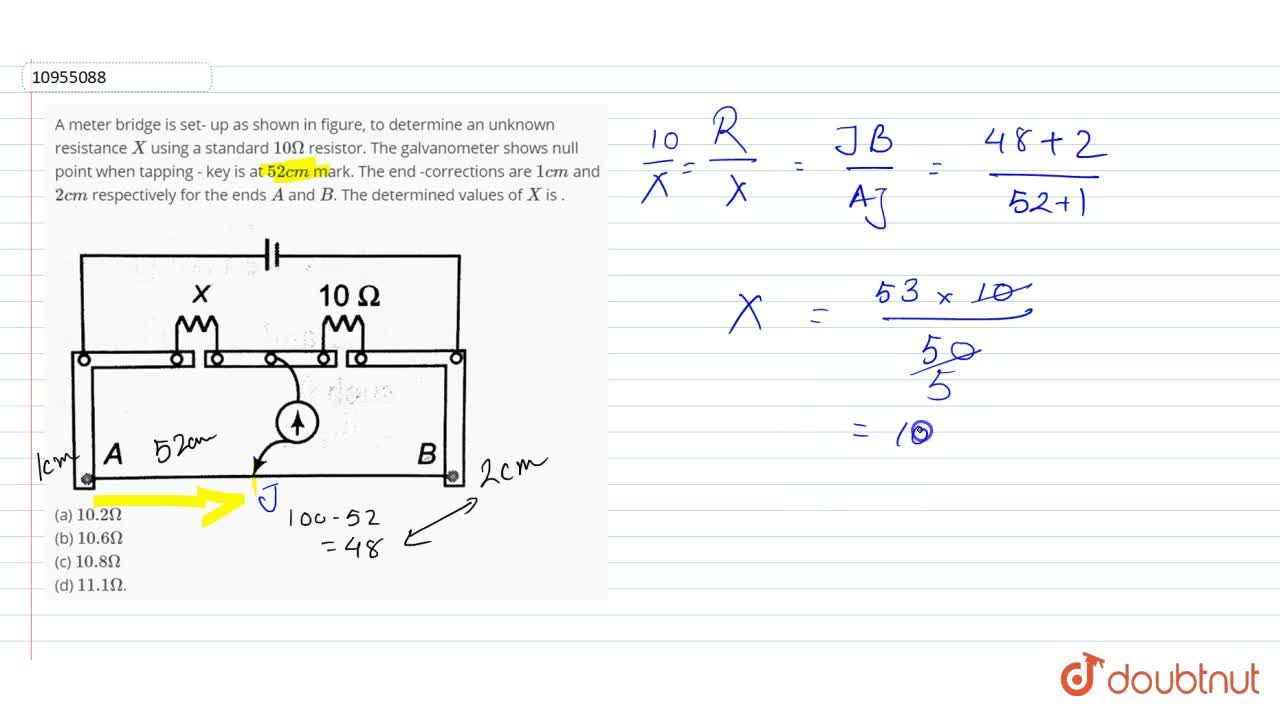 10955088
A meter bridge is set- up as shown in figure, to determine an unknown
resistance X using a standard 10Ω resistor. The galvanometer shows null
point when tapping - key is at 52cm mark. The end -corrections are 1cm and
2cm respectively for the ends A and B. The determined values of X is .
X
10 Ω
A
B
1cm
52cm
2cm
J
100-52
=48
(a) 10.2Ω
(b) 10.6Ω
(c) 10.8Ω
(d) 11.1Ω.
10/X = R/X = JB/AJ = 48+2/52+1
X = 53 × 10/50
5
= 10
doubtnut